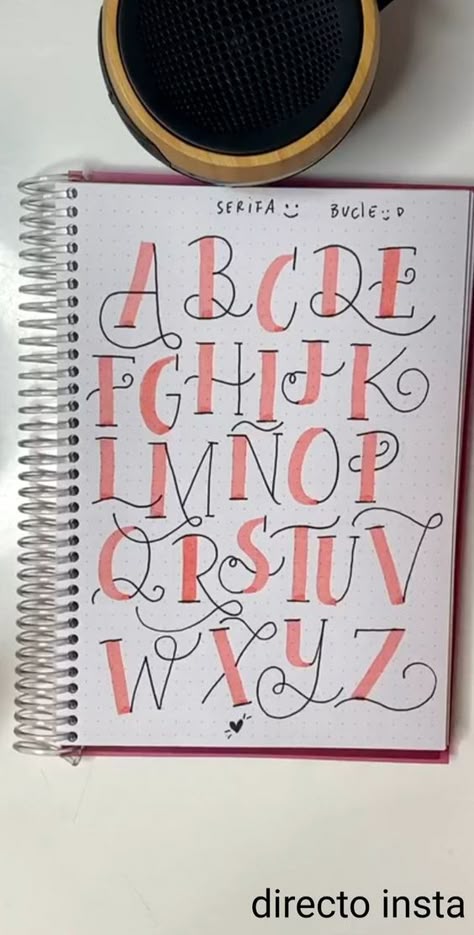 SERIFA :) BUClE :D
A B C D E
F G H I J K
L M Ñ O P
Q R S T U V
W X Y Z
directo insta